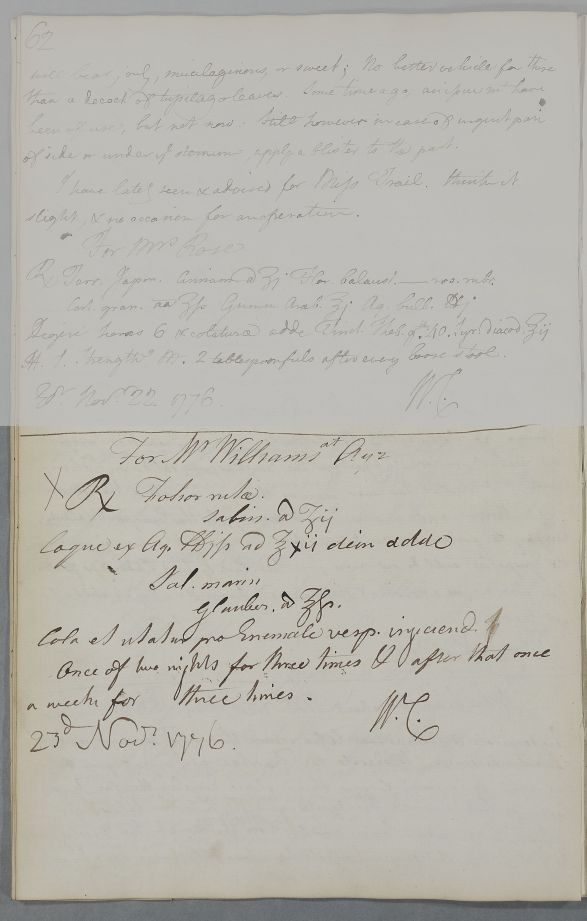 62
will bear, oily, mucilaginous, or sweet; No better vehicle for these
than a decoct. of tupilago leaves. Some time ago, an ipur might have
been of use, but not now. Still however in case of urgent pain
of side or under ye sternum, apply a blister to the part.
I have lately seen & advised for Miss Trail. think it
slight, & no occasion for an operation.
For Mrs Rose
℞ Terr. Japon. Cinnam. a ʒj Flor. balaust. — ros. rubr.
Cort. gran. aa ʒſs Gummi Arab. ʒj Aq. bull. ℔j
Digere horas 6 & colaturæ adde Tinct. Theb. gtt. 40. Syr. diacod. ʒij
2 tablespoonfuls after every loose stool.
Edr. Novr. 22 1776.
W.C.
For Mr Williams at Ayr
X ℞ Folior rutæ.
sabin. a ʒij
Coque ex Aq. ℔jſs ad ℥xii dein adde
Sal. marin
Glauber. a ʒſs.
Cola et utatur pro Enemate vesp. injiciend.
Once of two nights for three times & after that once
a week for three times.
W.C.
23d Novr. 1776.